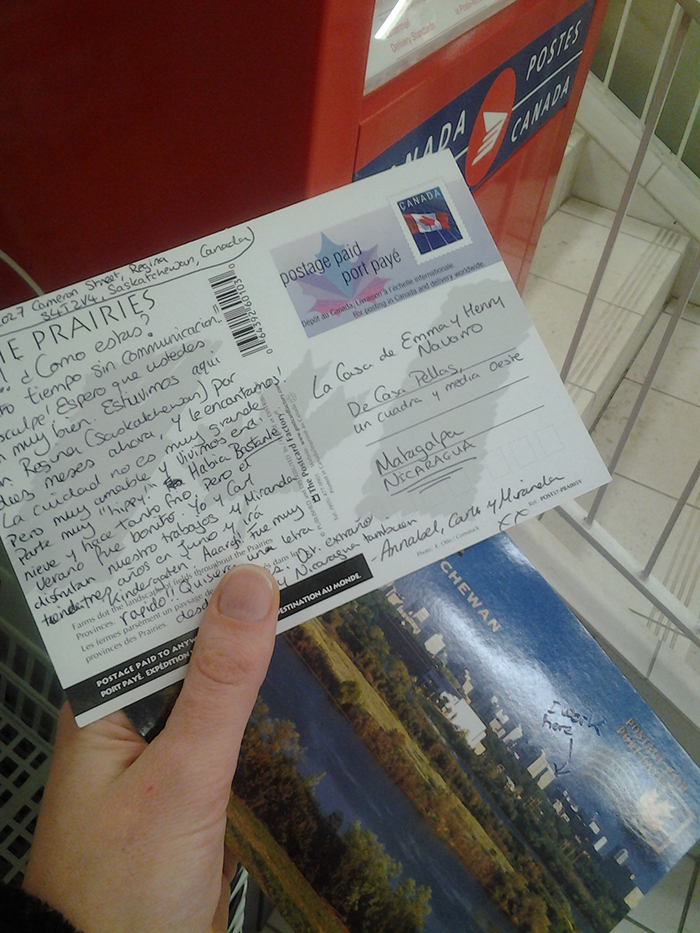 Delivery Standards
POSTES
CANADA
CANADA
Cameron Street, Regina
S4T2V4, Saskatchewan, Canada)
PRAIRIES
¿Como estas?
tiempo sin communicacion.
Espero que ustedes
muy bien. Estuvimos aqui
Regina (Saskatchewan) por
meses ahora, y le encantamos!
La cuidad no es muy grande
Pero muy amable y vivimos en
Parte muy "hippy". Habia Bastante
nieve y hace tanto frio, pero el
verano fue bonito. Yo y Carl
disfrutan nuestro trabajos y Miranda
tendra tres años en Junio y irá
Kindergarten. Aaargh! fue muy
rapido!! Quisiera una letra
desde
Dt. extraño
y Nicaragua tambien
- Annabel, Carl y Miranda
XX
Farms dot the landscape of fields throughout the Prairie
Provinces.
Les fermes parsèment un paysage de
provinces des Prairies.
POSTAGE PAID TO ANYW
DESTINATION AU MONDE.
PORT PAYÉ. EXPÉDITION
0 64392 60103 0
The Postcard Factory
CANADA
postage paid
port payé
Dépôt au Canada, Livraison à l'échelle internationale.
For posting in Canada and delivery worldwide.
La Casa de Emma y Henry
Navarro
De Casa Pellas,
un cuadra y media Oeste
Matagalpa
NICARAGUA
Ref. POST17-PRAIRIEV
Photo: A. Otto / Comstock
CHEWAN
I work
here